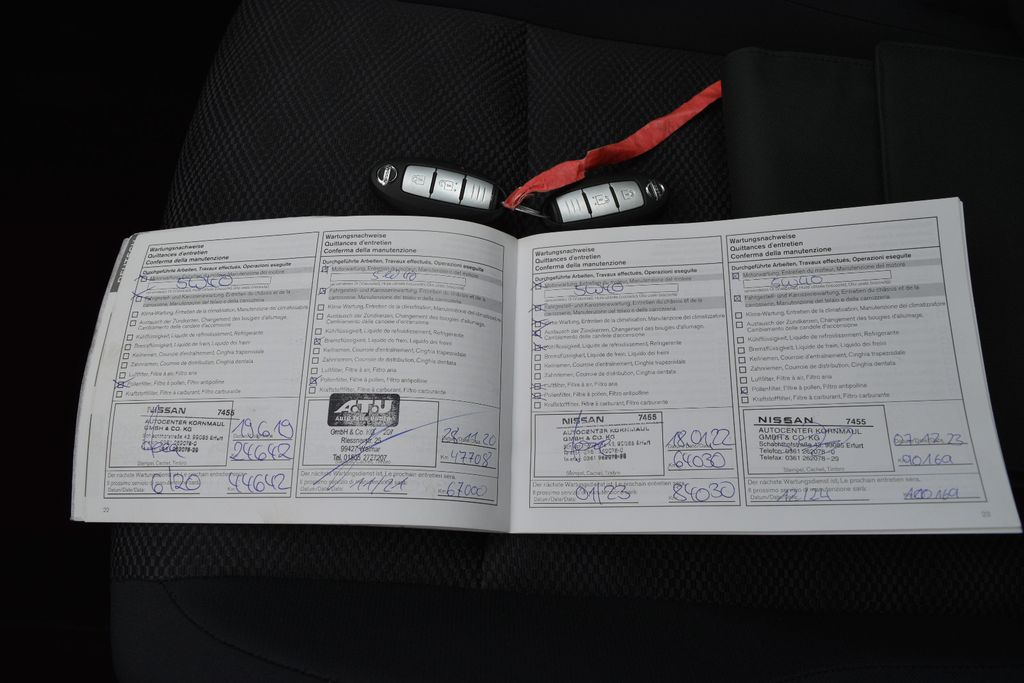 Wartungsnachweise
Quittances d'entretien
Conferma della manutenzione
Durchgeführte Arbeiten, Travaux effectués, Operazioni eseguite
Motorwartung, Entretien du moteur, Manutenzione del motore
5W40
Fahrgestell- und Karosseriewartung, Entretien du châssis et de la
carrosserie, Manutenzione del telaio e della carrozzeria
Klima-Wartung, Entretien de la climatisation, Manutenzione del climatizzatore
Austausch der Zündkerzen, Changement des bougies d'allumage,
Cambiamento delle candele d'accensione
Kühlflüssigkeit, Liquide de refroidissement, Refrigerante
Bremsflüssigkeit, Liquide de frein, Liquido dei freini
Keilriemen, Courroie d'entraînement, Cinghia trapezoidale
Zahnriemen, Courroie de distribution, Cinghia dentata
Luftfilter, Filtre à air, Filtro aria
Pollenfilter, Filtre à pollen, Filtro antipolline
Kraftstofffilter, Filtre à carburant, Filtro carburante
NISSAN 7455
AUTOCENTER KORNMAUL
GMBH & CO. KG
Schlachthofstraße 43, 99085 Erfurt
19.6.19
24642
Stempel, Cachet, Timbro
Der nächste Wartungsdienst ist, Le prochain entretien sera,
Il prossimo servizio di manutenzione sarà:
Datum/Date/Data:
6/20
44642
22
Wartungsnachweise
Quittances d'entretien
Conferma della manutenzione
Durchgeführte Arbeiten, Travaux effectués, Operazioni eseguite
Motorwartung, Entretien du moteur, Manutenzione del motore
Fahrgestell- und Karosseriewartung, Entretien du châssis et de la
carrosserie, Manutenzione del telaio e della carrozzeria
Klima-Wartung, Entretien de la climatisation, Manutenzione del climatizzatore
Austausch der Zündkerzen, Changement des bougies d'allumage,
Cambiamento delle candele d'accensione
Kühlflüssigkeit, Liquide de refroidissement, Refrigerante
Bremsflüssigkeit, Liquide de frein, Liquido dei freini
Keilriemen, Courroie d'entraînement, Cinghia trapezoidale
Zahnriemen, Courroie de distribution, Cinghia dentata
Luftfilter, Filtre à air, Filtro aria
Pollenfilter, Filtre à pollen, Filtro antipolline
Kraftstofffilter, Filtre à carburant, Filtro carburante
A.T.U
AUTO TEILE UNGER
GmbH & Co. KG
99427 Weimar
Tel. 01805 2727207
47708
Der nächste Wartungsdienst ist, Le prochain entretien sera,
Il prossimo servizio di manutenzione sarà:
Datum/Date/Data:
11/21
Km: 67000
Wartungsnachweise
Quittances d'entretien
Conferma della manutenzione
Durchgeführte Arbeiten, Travaux effectués, Operazioni eseguite
Motorwartung, Entretien du moteur, Manutenzione del motore
5W40
Fahrgestell- und Karosseriewartung, Entretien du châssis et de la
carrosserie, Manutenzione del telaio e della carrozzeria
Klima-Wartung, Entretien de la climatisation, Manutenzione del climatizzatore
Austausch der Zündkerzen, Changement des bougies d'allumage,
Cambiamento delle candele d'accensione
Kühlflüssigkeit, Liquide de refroidissement, Refrigerante
Bremsflüssigkeit, Liquide de frein, Liquido dei freini
Keilriemen, Courroie d'entraînement, Cinghia trapezoidale
Zahnriemen, Courroie de distribution, Cinghia dentata
Luftfilter, Filtre à air, Filtro aria
Pollenfilter, Filtre à pollen, Filtro antipolline
Kraftstofffilter, Filtre à carburant, Filtro carburante
NISSAN 7455
AUTOCENTER KORNMAUL
GMBH & CO. KG
18.01.22
64030
Stempel, Cachet, Timbro
Der nächste Wartungsdienst ist, Le prochain entretien sera,
Il prossimo servizio di manutenzione sarà:
Datum/Date/Data:
01/23
84030
Wartungsnachweise
Quittances d'entretien
Conferma della manutenzione
Durchgeführte Arbeiten, Travaux effectués, Operazioni eseguite
Motorwartung, Entretien du moteur, Manutenzione del motore
5W40
Fahrgestell- und Karosseriewartung, Entretien du châssis et de la
carrosserie, Manutenzione del telaio e della carrozzeria
Klima-Wartung, Entretien de la climatisation, Manutenzione del climatizzatore
Austausch der Zündkerzen, Changement des bougies d'allumage,
Cambiamento delle candele d'accensione
Kühlflüssigkeit, Liquide de refroidissement, Refrigerante
Bremsflüssigkeit, Liquide de frein, Liquido dei freini
Keilriemen, Courroie d'entraînement, Cinghia trapezoidale
Zahnriemen, Courroie de distribution, Cinghia dentata
Luftfilter, Filtre à air, Filtro aria
Pollenfilter, Filtre à pollen, Filtro antipolline
Kraftstofffilter, Filtre à carburant, Filtro carburante
NISSAN 7455
AUTOCENTER KORNMAUL
GMBH & CO. KG
Schlachthofstraße 43, 99085 Erfurt
Telefon: 0361 262078-0
Telefax: 0361 262078-29
90169
Stempel, Cachet, Timbro
Der nächste Wartungsdienst ist, Le prochain entretien sera,
Il prossimo servizio di manutenzione sarà:
Datum/Date/Data:
12/24
23